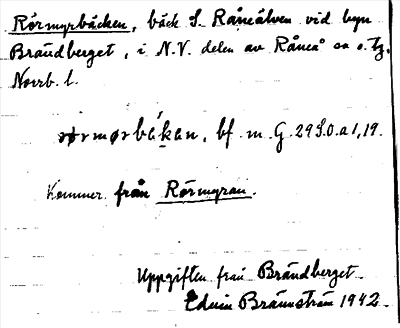 Rörmyrbäcken, bäck S. Råneälven vid byn
Brändberget, i N.V. delen av Råneå sn o. tg.
Norrb. l.
rørmørbäkan, bf. m. G. 29 S.O. a 1, 19.
Kommer från Rörmyran.
Uppgiften från Brändberget
Edvin Brännström 1942.